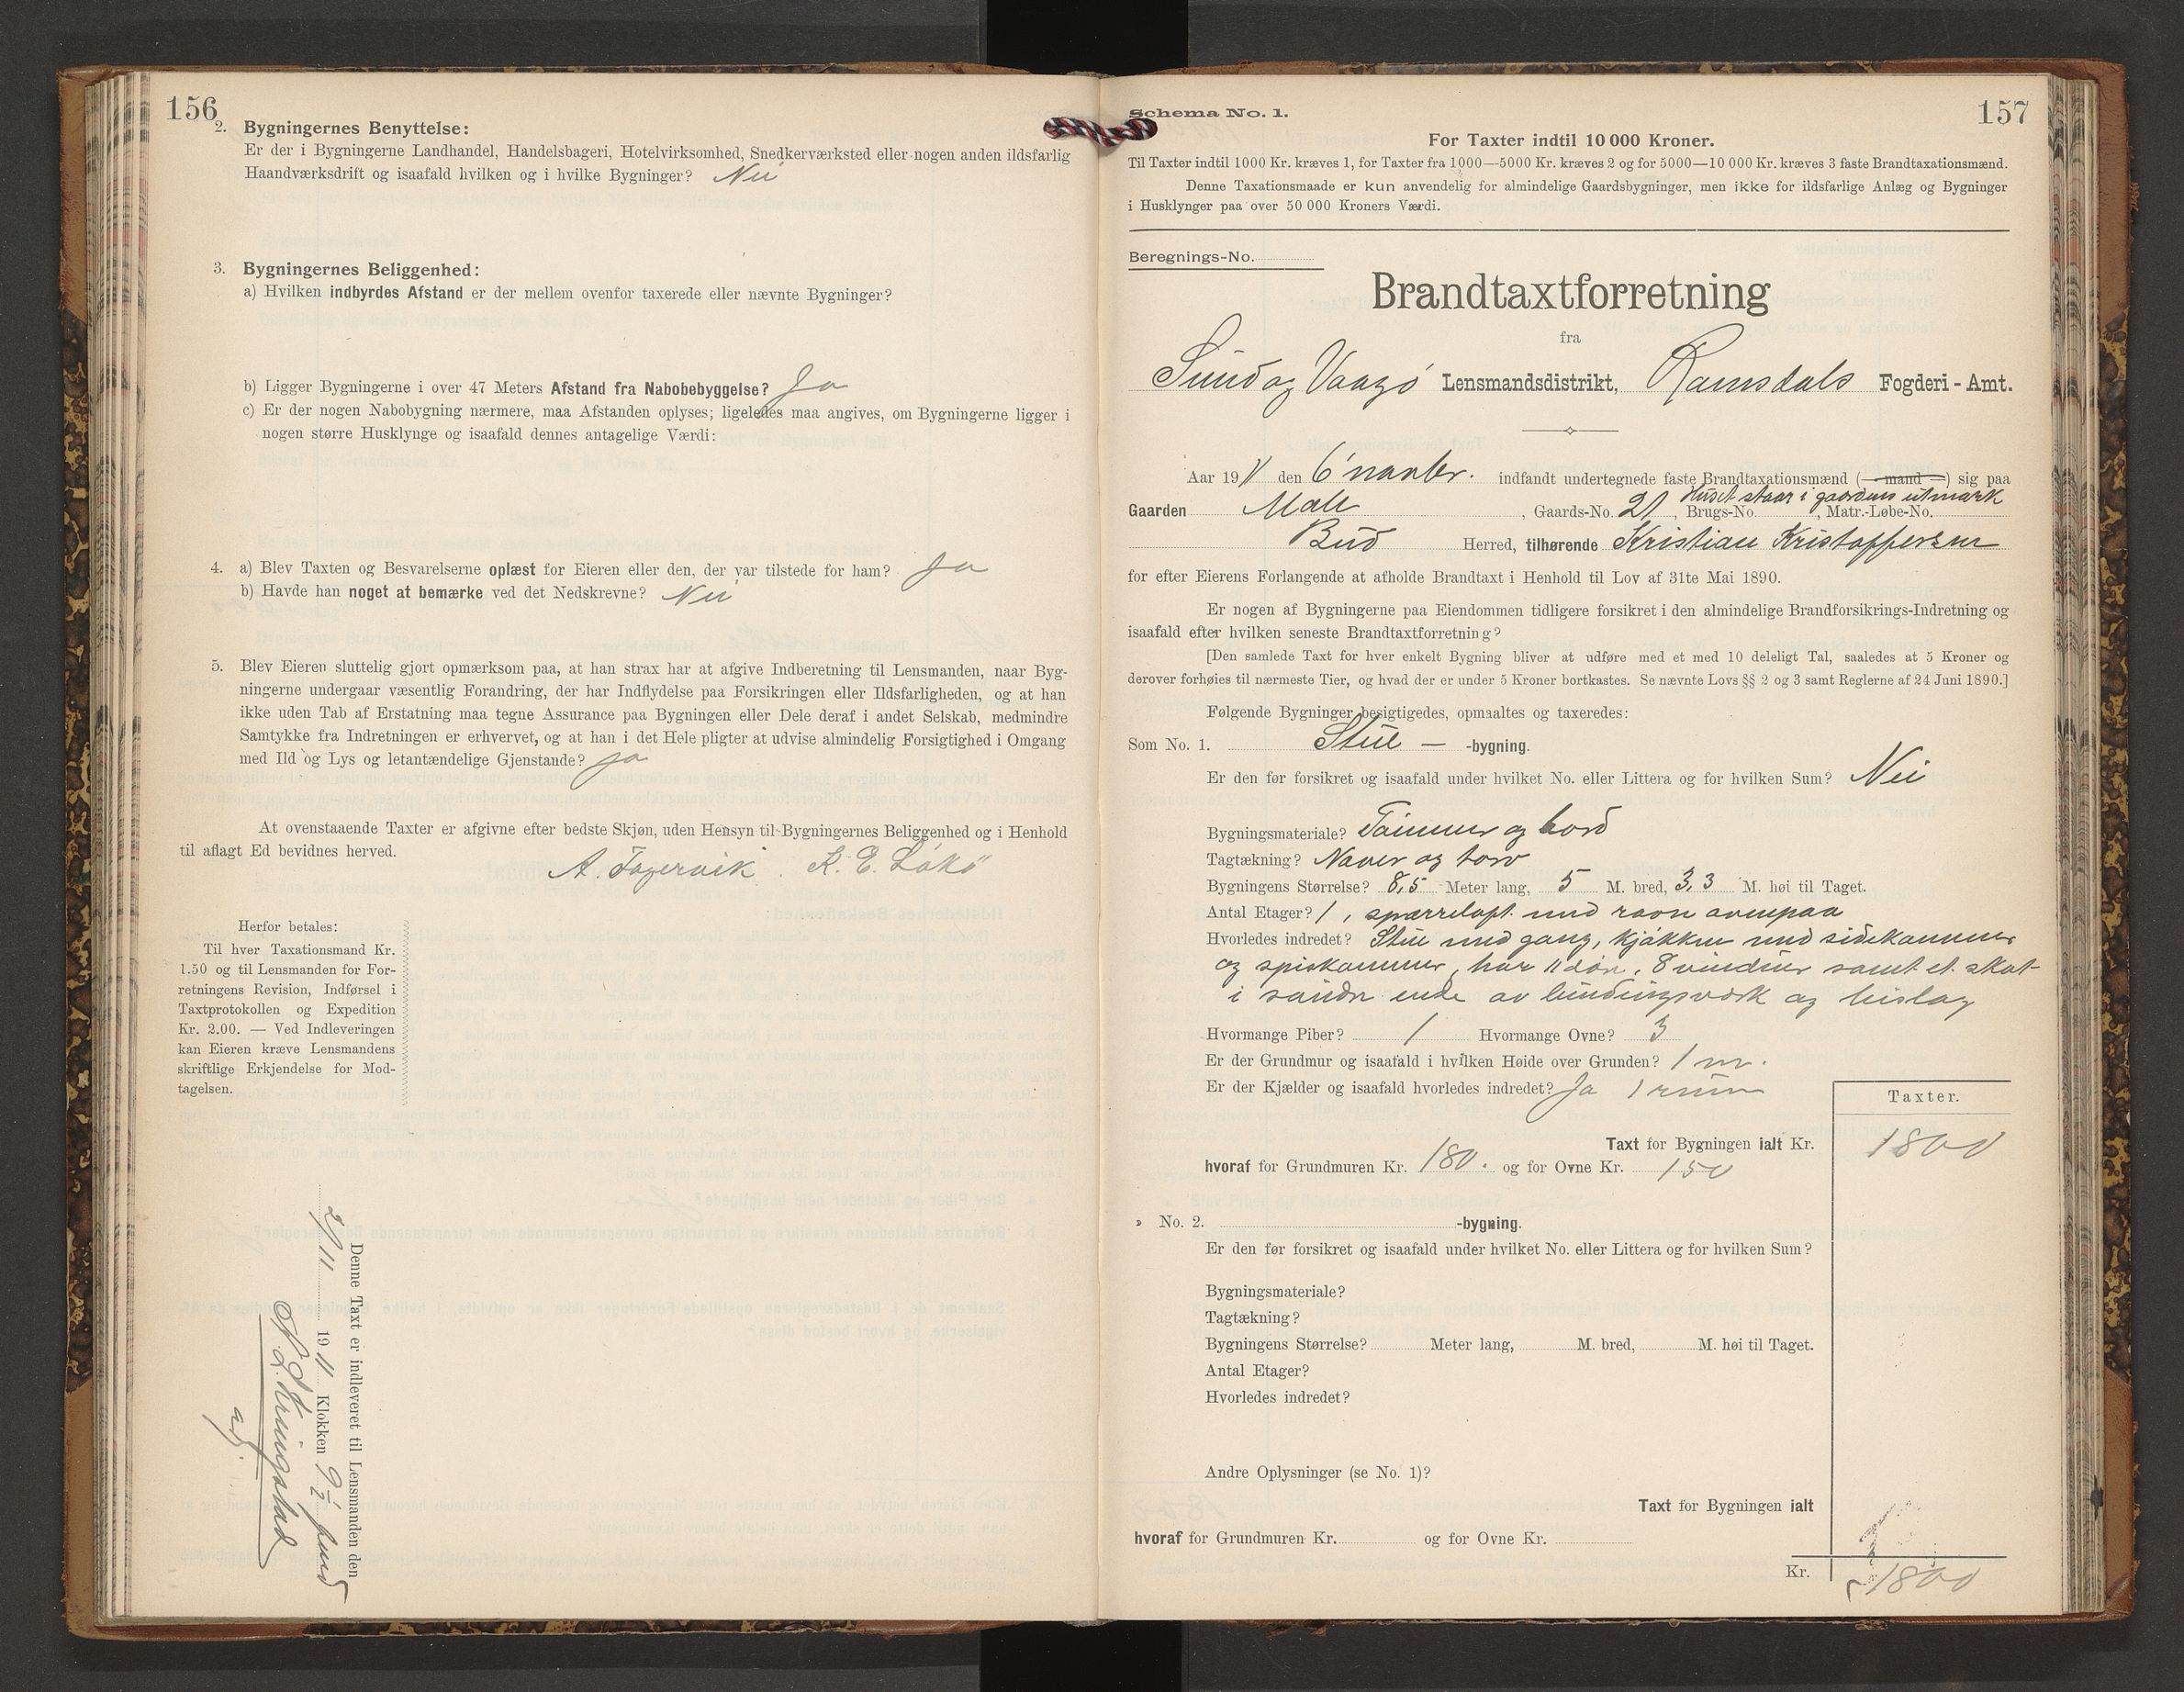 156
2. Bygningernes Benyttelse:
Er der i Bygningerne Landhandel, Handelsbageri, Hotelvirksomhed, Snedkerværksted eller nogen anden ildsfarlig
Haandværksdrift og isaafald hvilken og i hvilke Bygninger? Nei
3. Bygningernes Beliggenhed:
a) Hvilken indbyrdes Afstand er der mellem ovenfor taxerede eller nævnte Bygninger?
b) Ligger Bygningerne i over 47 Meters Afstand fra Nabobebyggelse? Ja
c) Er der nogen Nabobygning nærmere, maa Afstanden oplyses; ligeledes maa angives, om Bygningerne ligger i
nogen større Husklynge og isaafald dennes antagelige Værdi:
4. a) Blev Taxten og Besvarelserne oplæst for Eieren eller den, der var tilstede for ham? Ja
b) Havde han noget at bemærke ved det Nedskrevne? Nei
5. Blev Eieren sluttelig gjort opmærksom paa, at han strax har at afgive Indberetning til Lensmanden, naar Byg-
ningerne undergaar væsentlig Forandring, der har Indflydelse paa Forsikringen eller Ildsfarligheden, og at han
ikke uden Tab af Erstatning maa tegne Assurance paa Bygningen eller Dele deraf i andet Selskab, medmindre
Samtykke fra Indretningen er erhvervet, og at han i det Hele pligter at udvise almindelig Forsigtighed i Omgang
med Ild og Lys og letantændelige Gjenstande? Ja
At ovenstaaende Taxter er afgivne efter bedste Skjøn, uden Hensyn til Bygningernes Beliggenhed og i Henhold
til aflagt Ed bevidnes herved.
A. Fagervik. K. E. Løkø
Herfor betales:
Til hver Taxationsmand Kr.
1.50 og til Lensmanden for For-
retningens Revision, Indførsel i
Taxtprotokollen og Expedition
Kr. 2.00. — Ved Indleveringen
kan Eieren kræve Lensmandens
skriftlige Erkjendelse for Mod-
tagelsen.
Denne Taxt er indleveret til Lensmanden den
2/11 1911 Klokken 9½ fmd
Kringstad
157
Schema No. 1.
For Taxter indtil 10 000 Kroner.
Til Taxter indtil 1000 Kr. kræves 1, for Taxter fra 1000—5000 Kr. kræves 2 og for 5000—10 000 Kr. kræves 3 faste Brandtaxationsmænd.
Denne Taxationsmaade er kun anvendelig for almindelige Gaardsbygninger, men ikke for ildsfarlige Anlæg og Bygninger
i Husklynger paa over 50 000 Kroners Værdi.
Beregnings-No.
Brandtaxtforretning
fra
Sund og Vaagø Lensmandsdistrikt, Romsdals Fogderi - Amt.
Aar 1911 den 6' novbr. indfandt undertegnede faste Brandtaxationsmænd (—mand—) sig paa
Huset staar i gaardens utmark
Gaarden Male, Gaards-No. 21, Brugs-No. , Matr.-Løbe-No.
Bud Herred, tilhørende Kristian Kristoffersen
for efter Eierens Forlangende at afholde Brandtaxt i Henhold til Lov af 31te Mai 1890.
Er nogen af Bygningerne paa Eiendommen tidligere forsikret i den almindelige Brandforsikrings-Indretning og
isaafald efter hvilken seneste Brandtaxtforretning?
[Den samlede Taxt for hver enkelt Bygning bliver at udføre med et med 10 deleligt Tal, saaledes at 5 Kroner og
derover forhøies til nærmeste Tier, og hvad der er under 5 Kroner bortkastes. Se nævnte Lovs §§ 2 og 3 samt Reglerne af 24 Juni 1890.]
Følgende Bygninger besigtigedes, opmaaltes og taxeredes:
Som No. 1. Stue — -bygning.
Er den før forsikret og isaafald under hvilket No. eller Littera og for hvilken Sum? Nei
Bygningsmateriale? Tømmer og bord
Tagtækning? Naver og torv
Bygningens Størrelse? 8,5 Meter lang, 5 M. bred, 3,3 M. høi til Taget.
Antal Etager? 1, sparreloft med ravn ovenpaa
Hvorledes indredet? Stue med gang, kjøkken med sidekammer
og spiskammer, har 11 dør, 8 vinduer samt et skot
i søndre ende av bindingsverk og bislag
Hvormange Piber? 1 Hvormange Ovne? 3
Er der Grundmur og isaafald i hvilken Høide over Grunden? 1 m.
Er der Kjælder og isaafald hvorledes indredet? Ja 1 rum
Taxter.
Taxt for Bygningen ialt Kr. 1800
hvoraf for Grundmuren Kr. 180. og for Ovne Kr. 150
» No. 2. -bygning.
Er den før forsikret og isaafald under hvilket No. eller Littera og for hvilken Sum?
Bygningsmateriale?
Tagtækning?
Bygningens Størrelse? Meter lang, M. bred, M. høi til Taget.
Antal Etager?
Hvorledes indredet?
Andre Oplysninger (se No. 1)?
Taxt for Bygningen ialt
hvoraf for Grundmuren Kr. og for Ovne Kr.
Kr. 1800